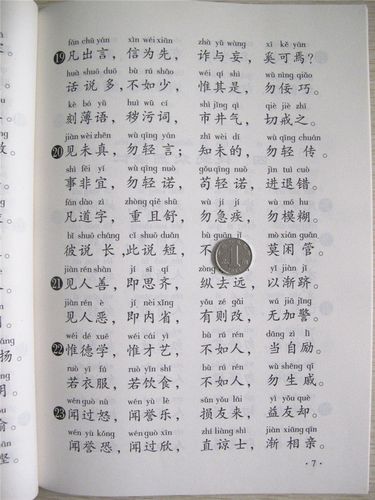 fán chū yán xìn wéi xiān zhà yǔ wàng xī kě yān
⑲凡出言，信为先，诈与妄，奚可焉？
huà shuō duō bù rú shǎo wéi qí shì wù nìng qiǎo
话说多，不如少，惟其是，勿佞巧。
kè bó yǔ huì wū cí shì jǐng qì qiè jiè zhī
刻薄语，秽污词，市井气，切戒之。
jiàn wèi zhēn wù qīng yán zhī wèi dì wù qīng chuán
⑳见未真，勿轻言；知未的，勿轻传。
shì fēi yí wù qīng nuò gǒu qīng nuò jìn tuì cuò
事非宜，勿轻诺，苟轻诺，进退错。
fán dào zì zhòng qiě shū wù jí jí wù mó hu
凡道字，重且舒，勿急疾，勿模糊。
bǐ shuō cháng cǐ shuō duǎn bù guān jǐ mò xián guǎn
彼说长，此说短，不 莫闲管。
jiàn rén shàn jí sī qí zòng yǐ jiàn jī
㉑见人善，即思齐，纵去远，以渐跻。
jiàn rén è jí nèi xǐng yǒu zé gǎi wú jiā jǐng
见人恶，即内省，有则改，无加警。
wéi dé xué wéi cái yì bù rú rén dāng zì lì
㉒惟德学，惟才艺，不如人，当自励。
ruò yī fú ruò yǐn shí bù rú rén wù shēng qī
若衣服，若饮食，不如人，勿生戚。
wén guò nù wén yù lè sǔn yǒu lái yì yǒu què
㉓闻过怒，闻誉乐，损友来，益友却。
wén yù kǒng wén guò xīn zhí liàng shì jiàn xiāng qīn
闻誉恐，闻过欣，直谅士，渐相亲。
·7·